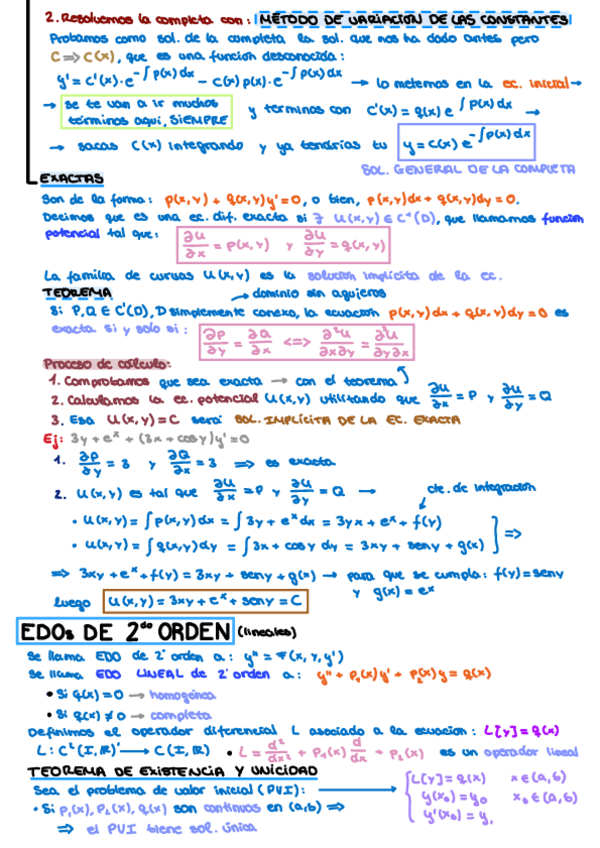 2. Resolvemos la completa con: MÉTODO DE VARIACIÓN DE LAS CONSTANTES
Probamos como sol. de la completa la sol. que nos ha dado antes pero
C ⇒ C(x), que es una función desconocida:
y' = C'(x)·e^{-∫P(x)dx} - C(x)p(x)·e^{-∫P(x)dx} → lo metemos en la ec. inicial →
→ se te van a ir muchos términos aquí, SIEMPRE y terminas con C'(x) = q(x) e^{∫P(x)dx} →
→ sacas C(x) integrando y ya tendrías tu y = C(x) e^{-∫P(x)dx}
SOL. GENERAL DE LA COMPLETA
EXACTAS
Son de la forma: P(x,y) + Q(x,y)y' = 0, o bien, P(x,y)dx + Q(x,y)dy = 0.
Decimos que es una ec. dif. exacta si ∃ U(x,y) ∈ C¹(D), que llamamos función
potencial tal que: ∂U/∂x = P(x,y) y ∂U/∂y = Q(x,y)
La familia de curvas U(x,y) es la solución implícita de la ec.
TEOREMA → dominio sin agujeros
Si P,Q ∈ C'(D), D simplemente conexo, la ecuación P(x,y)dx + Q(x,y)dy = 0 es
exacta si y solo si: ∂P/∂y = ∂Q/∂x <=> ∂²U/∂x∂y = ∂²U/∂y∂x
Proceso de cálculo:
1. Comprobamos que sea exacta → con el teorema
2. Calculamos la ec. potencial U(x,y) utilitando que ∂U/∂x = P y ∂U/∂y = Q
3. Esa U(x,y) = C será SOL. IMPLÍCITA DE LA EC. EXACTA
Ej: 3y + e^x + (3x + cosy)y' = 0
1. ∂P/∂y = 3 y ∂Q/∂x = 3 ⇒ es exacta
2. U(x,y) es tal que ∂U/∂x = P y ∂U/∂y = Q → cte. de integración
• U(x,y) = ∫P(x,y)dx = ∫3y + e^x dx = 3yx + e^x + f(y)
• U(x,y) = ∫Q(x,y)dy = ∫3x + cosy dy = 3xy + seny + g(x) ⇒
⇒ 3xy + e^x + f(y) = 3xy + seny + g(x) → para que se cumpla: f(y) = seny
y g(x) = e^x
luego U(x,y) = 3xy + e^x + seny = C
EDOs DE 2do ORDEN (lineales)
Se llama EDO de 2º orden a: y'' = F(x,y,y')
Se llama EDO LINEAL de 2º orden a: y'' + P₁(x)y' + P₂(x)y = q(x)
• Si q(x) = 0 → homogénea
• Si q(x) ≠ 0 → completa
Definimos el operador diferencial L asociado a la ecuación: L[y] = q(x)
L: C²(I,ℝ) → C(I,ℝ) • L = d²/dx² + P₁(x) d/dx + P₂(x) es un operador lineal
TEOREMA DE EXISTENCIA Y UNICIDAD
Sea el problema de valor inicial (PVI): → L[y] = q(x) x ∈ (a,b)
• Si P₁(x), P₂(x), q(x) son continuos en (a,b) ⇒ y(x₀) = y₀ x₀ ∈ (a,b)
⇒ el PVI tiene sol. única y'(x₀) = y₁